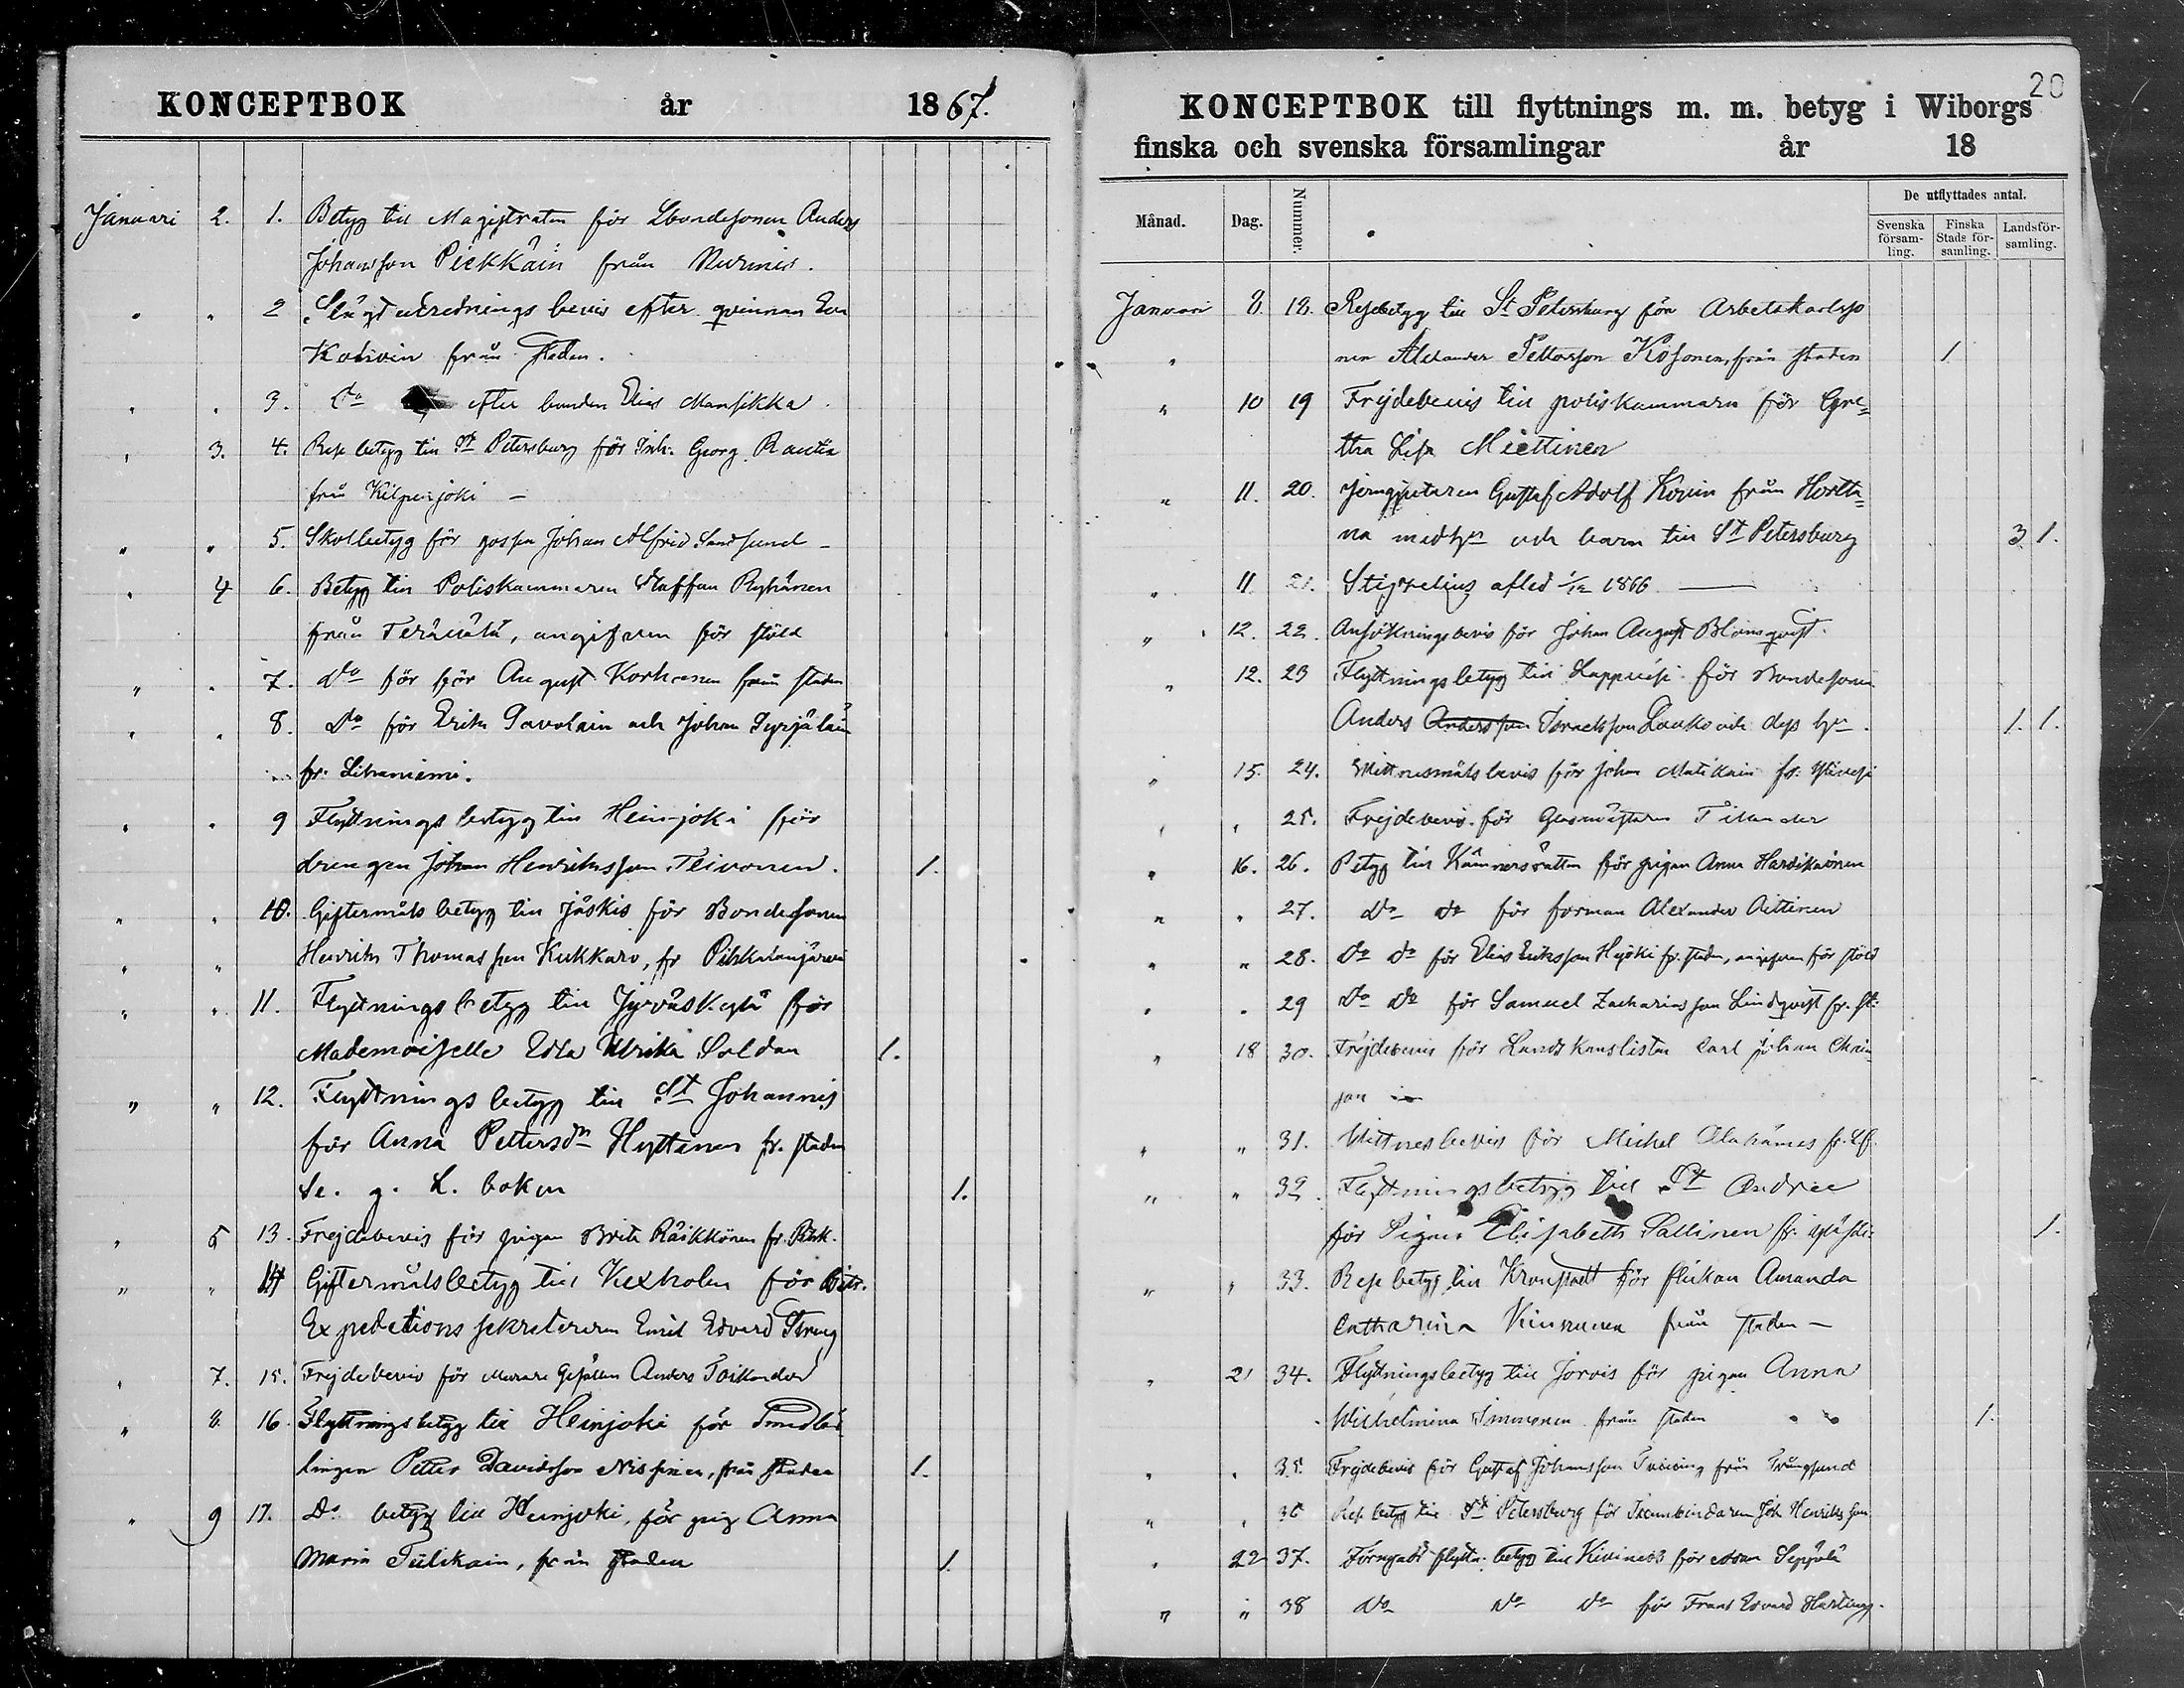 KONCEPTBOK år 1867.
Januari 2. 1. Betyg till Magistraten för Bondesonen Anders
Johansson Piekkäin från Nurmis.
" " 2 Slägtutrednings bevis efter qvinnan Eva
från staden.
" " 3. do efter bonden Elias Mansikka
" 3. 4. Rese betyg till St Petersburg för Inh. Georg Rautia
från Kilpenjoki –
" " 5. Skolbetyg för gossen Johan Alfrid Sandsund –
" 4 6. Betyg till Poliskammaren Staffan Ryhänen
från Terävälä, angifven för stöld
" " 7. do för för August Korhonen från staden
" " 8. do för Erik Pavolain och Johan Syrjäläin
fr. Lihaniemi.
" " 9 Flyttnings betyg till Heinjoki för
drengen Johan Henriksson Teivonen. 1.
" " 10. Giftermåls betyg till Jäskis för Bondesonen
" " Henrik Thomasson Kukkaro, fr
" " 11. Flyttnings betyg till Jyväskylä för
Mademoiselle Edla Ulrika Soldan 1.
" " 12. Flyttnings betyg till St Johannis
för Anna Pettersdr Hyttinen fr. staden
Se. g. L. boken 1.
" 5 13. Frejdebevis för pigan Brita Räikkönen fr.
" " 14 Giftermålsbetyg till Kexholm för Bitr.
Expeditions sekreteraren Emil Edvard
" 7. 15. Frejdebevis för Murare Gesällen Anders Toikander
" 8. 16. Flyttningsbetyg till Heinjoki för
lingen Petter Davidsson Nissinen, från staden 1.
" 9 17. Do betyg till Heinjoki, för pig Anna
Maria Tulikain, från staden 1.
20
KONCEPTBOK till flyttnings m. m. betyg i Wiborgs
finska och svenska församlingar år 18
Månad. Dag. Nummer. De utflyttades antal.
Svenska försam-ling. Finska Stads för-samling. Landsför-samling.
Januari 8. 18. Resebetyg till St Petersburg för Arbetskarlsso
" nen Alexander Pettersson Kosonen, från staden 1
" 10 19 Frejdebevis till poliskammarn för Gre=
tha Lisa Miettinen
" 11. 20. Jerngjutaren Gustaf Adolf Kovin från Hortta=
na med hu och barn till St Petersburg 3 1.
" 11 21. afled 1/12 1866
" 12. 22. Ansökningsbevis för Johan August Blomqvist.
" 12. 23 Flyttningsbetyg till Lappvesi för Bondesonen
Anders Andersson Israelsson Laukо och dess hu. 1. 1.
" 15. 24. Wittnesmåls bevis för Johan Matikain fr.
" " 25. Frejdebevis för Glasmästaren Tilander
" 16. 26. Betyg till Kämnersrätten för pigan Anna
" " 27. do do för forman Alexander Aittinen
" " 28. do do för Elias Eriksson Hyöki fr. staden, angifven för stöld
" " 29 do do för Samuel Zachariasson Lindqvist fr. st:
" 18 30. Frejdebevis för Landskanslisten Carl Johan
" " 31. Wittnesbevis för Michel
" " 32. Flyttningsbetyg till St Andrea
för Pigan Elisabeth Sallinen fr. 1.
" " 33. Rese betyg till Kronstadt för flickan Amanda
Catharina Kinnunen från staden –
" 21 34. Flyttningsbetyg till Jorvis för pigan Anna
Wilhelmina Immonen från staden 1.
" " 35. Frejdebevis för Gustaf Johansson från Trångsund
" " 36 Rese betyg till St Petersburg för Joh Henriksson
" 22 37. Förnyadt flyttn. betyg till Kivinebb för Seppälä
" " 38 do do do för Frans Edvard